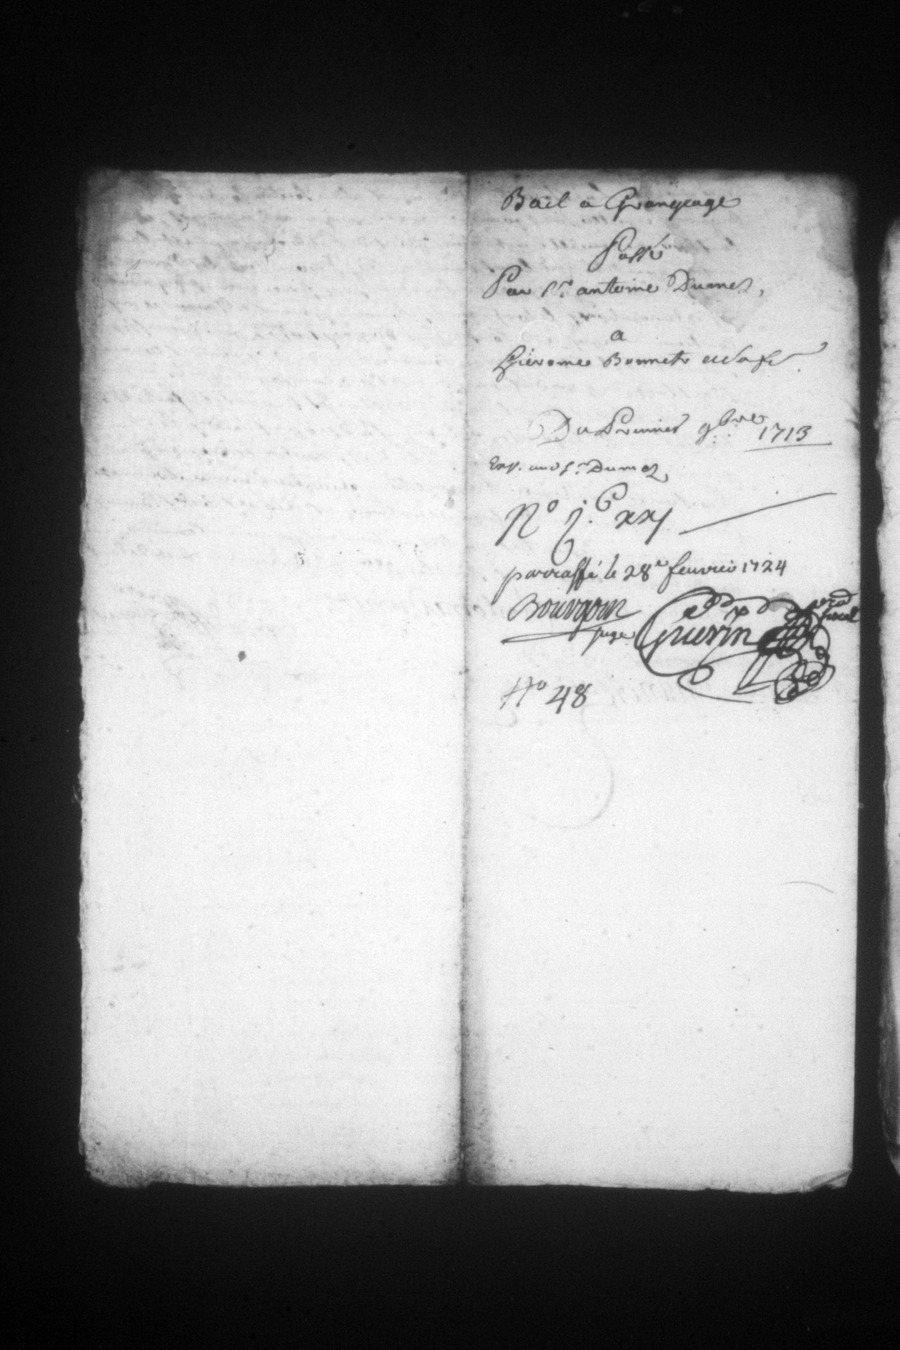 Bail a Grangeage
Passé
Par Sr. antoine Dumas,
a
hierome Bonnet
Du Premier 9bre 1713
Sr. Dumas
No j.C xxj
parraffé le 28e feuvrier 1724
Bourgoin
juge Guerin
fiscal
No 48